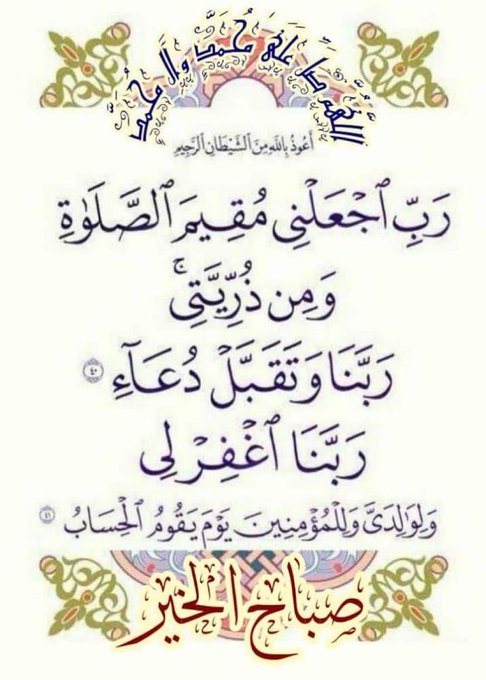 اللَّهُمَّ صَلِّ عَلَى مُحَمَّدٍ وَآلِ مُحَمَّدٍ
أَعُوذُ بِاللَّهِ مِنَ ٱلشَّيْطَانِ ٱلرَّجِيمِ
رَبِّ ٱجْعَلْنِى مُقِيمَ ٱلصَّلَوٰةِ
وَمِن ذُرِّيَّتِىۚ
رَبَّنَا وَتَقَبَّلْ دُعَآءِ ٤٠
رَبَّنَا ٱغْفِرْ لِى
وَلِوَٰلِدَىَّ وَلِلْمُؤْمِنِينَ يَوْمَ يَقُومُ ٱلْحِسَابُ ٤١
صباح الخير